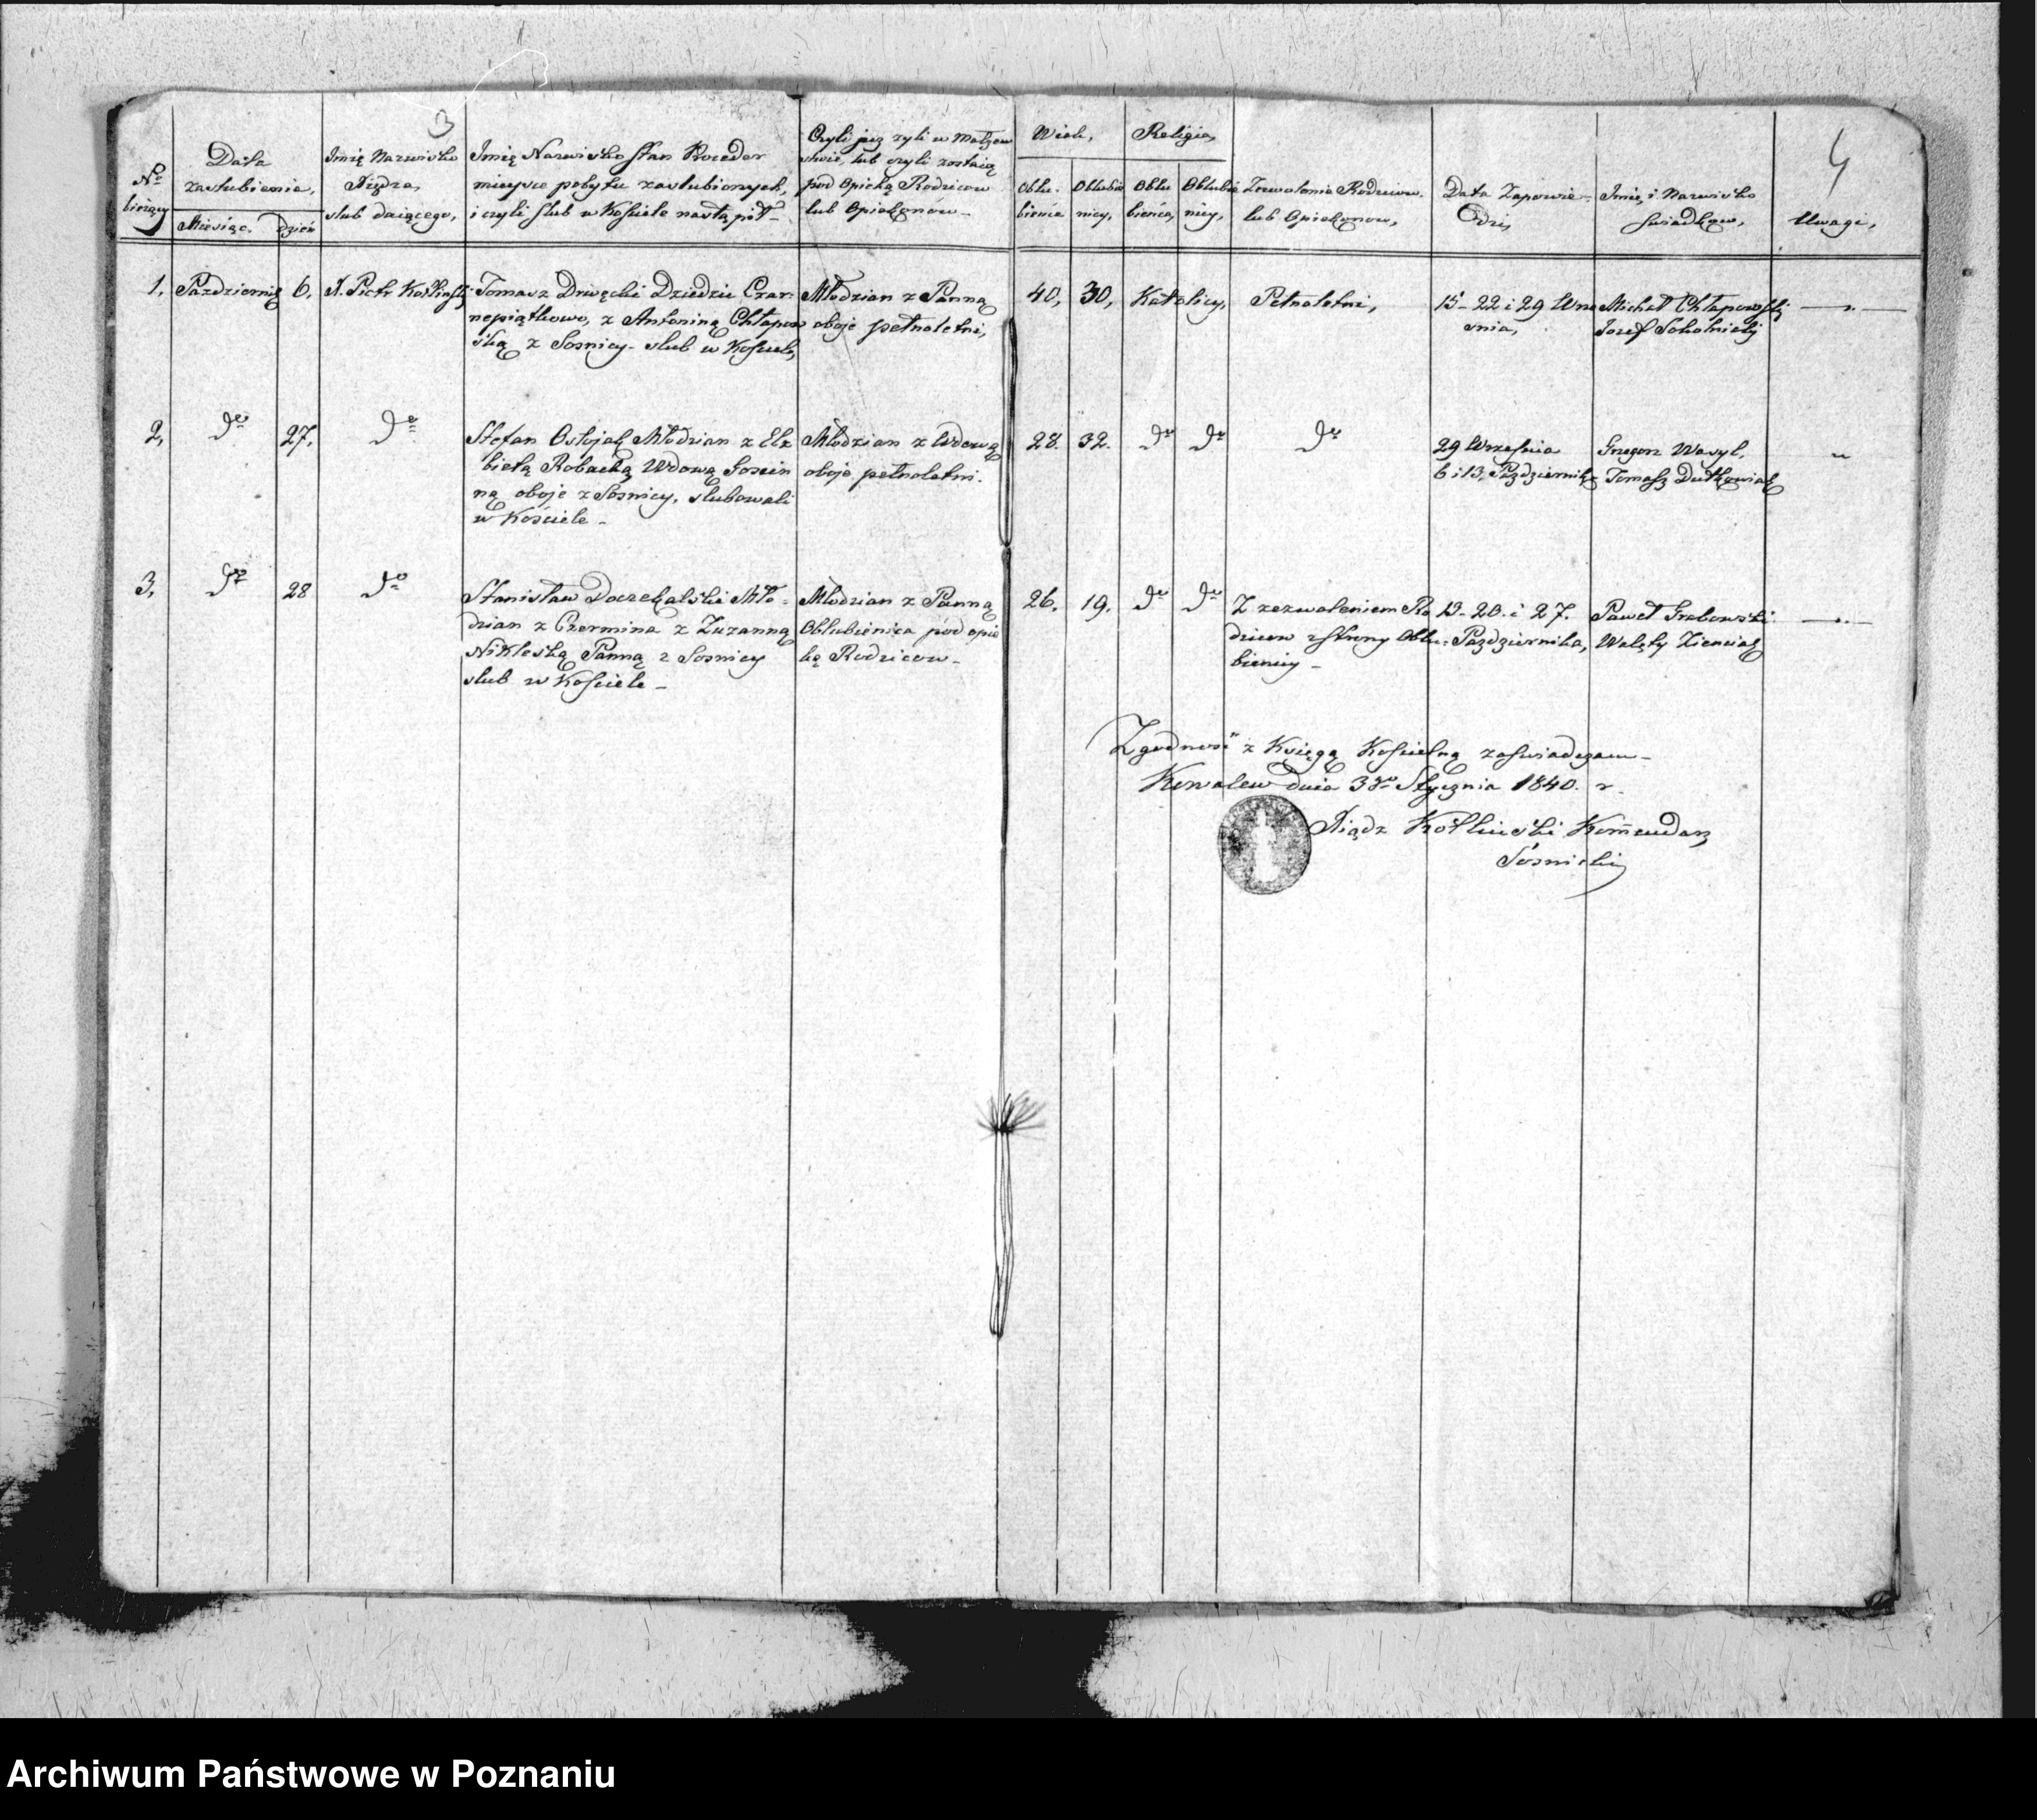 3
4
No
bieżący
Data
zaslubienia,
Miesiąc.
Dzień
Imię Nazwisko
Xiędza,
slub daiącego,
Imię Nazwisko Stan Proceder
mieysce pobytu zaslubionych,
i czyli slub w Kościele nastąpił
Czyli juz zyli w Małzen
stwie, lub czyli zostaią
pod Opieką Rodzicow
lub Opiekunów
Wiek,
Oblu-
bieńca
Oblubie
nicy,
Religia,
Oblu
bieńca,
Oblubie
nicy,
Zezwolenie Rodzicow
lub Opiekunow,
Data Zapowie-
dzi,
Imię i Nazwisko
swiadkow,
Uwagi,
1.
Pazdziernik
6.
X. Piotr Kotliński
Tomasz Drwęcki Dziedzic Czar-
nepiątkowo, z Antoniną Chłapow
ską z Sosnicy - slub w Kosciele,
Młodzian z Panną
oboje pełnoletni,
40,
30,
Katolicy,
Pełnoletni,
15- 22 i 29 Wrze
snia,
Michał Chłapowski
Jozef Sokolnicki
2,
do
27.
do
Stefan Ostojak Młodzian z Elz
bietą Robacką Wdową Goscin
ną oboje z Sosnicy, slubowali
w Kościele -
Młodzian z Wdową
oboje pełnoletni.
28.
32.
do
do
do
29 Września
6 i 13, Pazdziernika
Grzegorz Wasyl,
Tomasz Dutkowiak
3,
do
28
do
Stanisław Doczekalski Mło-
dzian z Czermina z Zuzanną
Nikleską Panną z Sosnicy
slub w Kosciele -
Młodzian z Panną
Oblubienica pod opie
ką Rodzicow -
26.
19.
do
do
Z zezwoleniem Ro
dzicow z strony Oblu-
bienicy -
13- 20. i 27.
Pazdziernika,
Paweł Grabowski
Walęty
Zgodnosć z Księgą Kościelną zaświadczam -
Kowalew dnia 3go Stycznia 1840. r.
Xiądz Kotliński Komendarz
Sosnicki
Archiwum Państwowe w Poznaniu